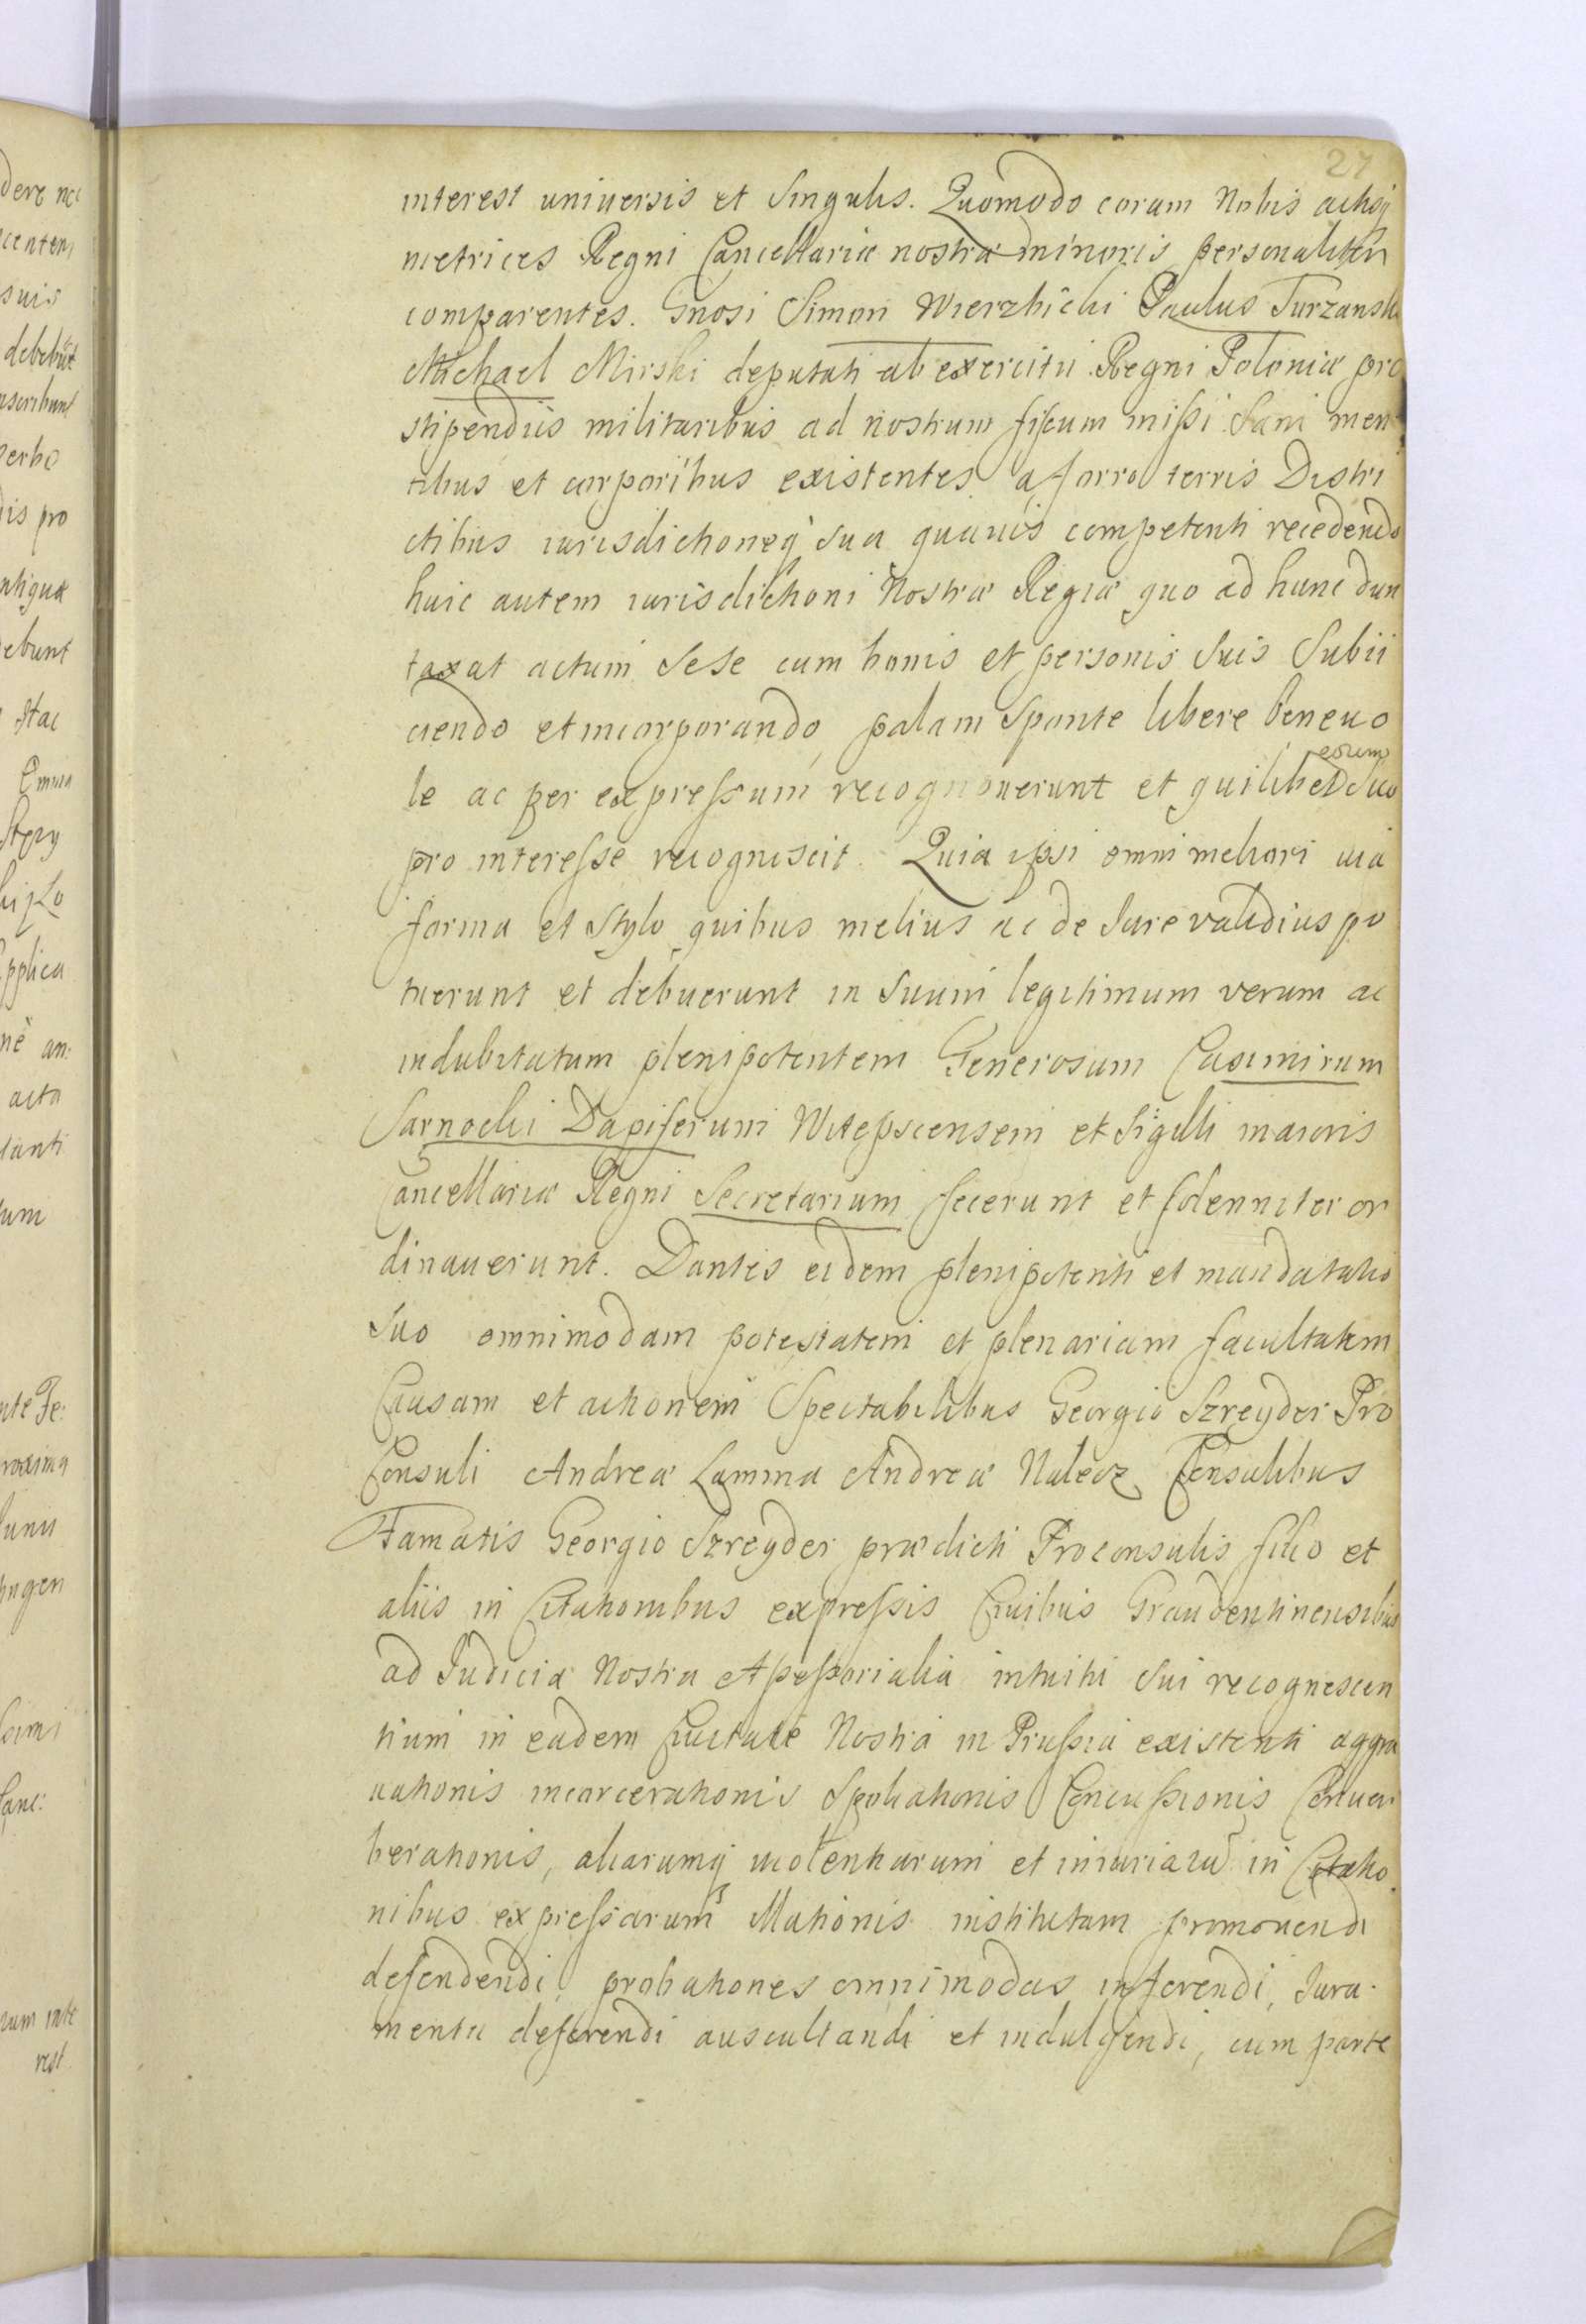 27
interest uniuersis et singulis. Quomodo coram Nobis actisq́
metrices Regni Cancellariæ nostræ minoris personaliter
comparentes. Gnosi Simon Wierzbicki Paulus Turzanski
Michael Mirski deputati ab exercitu Regni Poloniæ pro
stipendiis militaribus ad nostrum fiscum missi sani men
tibus et corporibus existentes a forro terris Distri
ctibus iurisdictioneq́ sua quauis competenti recedendo
huic autem iurisdictioni Nostræ Regiæ quo ad hunc dun
taxat actum sese cum bonis et personis suis Subii
ciendo et incorporando palam sponte libere beneuo
le ac per expressum recognouerunt et quilibet eorum suo
pro interesse recognoscit. Quia ipsi omni meliori uia
forma et stylo quibus melius ac de Iure validius po
tuerunt et debuerunt in suum legitimum verum ac
indubitatum plenipotentem Generosum Casimirum
Sarnocki Dapiferum Witepscensem et Sigilli maioris
Cancellariæ Regni Secretarium fecerunt et solenniter or
dinauerunt. Dantes eidem plenipotenti et mandatario
suo omnimodam potestatem et plenariam facultatem
Causam et actionem Spectabilibus Georgio Szreyder Pro
Consuli Andreæ Lamma Andreæ Nalecz Consulibus
Famatis Georgio Szreyder prædicti Proconsulis filio et
aliis in Citationibus expressis Ciuibus Graudentinensibus
ad Iudicia Nostra Assessorialia intuitu sui recognoscen
tium in eadem Ciuitate Nostra in Prussia existenti aggra
uationis incarcerationis Spoliationis Concussionis Conuer
berationis, aliarumq́ uiolentiarum et iniuriarū in Citatio
nibus expressarum Illationis institutam promouendi
defendendi, probationes omnimodas inferendi, Iura-
menta deferendi auscultandi et indulgendi, cum parte
dere nec
centem
suis
debebūt
scribunt
Verbo
dis pro
antiquæ
debunt
stac
pplica
acta
tanti
um
nte Fe:
roxima
Junii
ingen
ssimi
Canc:
rum inte
rest